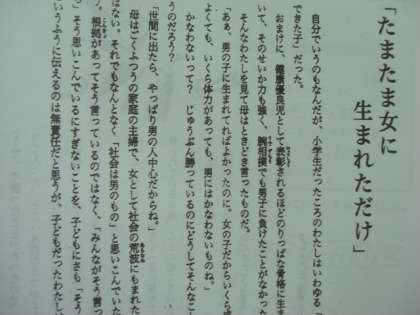 「たまたま女に
生まれただけ」
自分でいうのもなんだが、小学生だったころのわたしはいわゆる「
できた子」だった。
おまけに、健康優良児として表彰されるほどのりっぱな骨格に生ま
いて、そのせいか力も強く、腕相撲でも男子に負けたことがなかった
そんなわたしを見て母はときどき言ったものだ。
「あぁ、男の子に生まれてればよかったのに。女の子だからいくら成
よくても、いくら体力があっても、男にはかなわないものね。」
かなわないって? じゅうぶん勝っているのにどうしてそんなこ
うのだろう?
「世間に出たら、やっぱり男の人中心だからね。」
母はごくふつうの家庭の主婦で、女として社会の荒波にもまれた
はない。それでもなんとなく「社会は男のもの」と思いこんでいた
う。根拠があってそう言っているのではなく、「みんながそう言っ
ら」そう思いこんでいるにすぎないことを、子どもにさも「そう
いうふうに伝えるのは無責任だと思うが、子どもだったわたしは